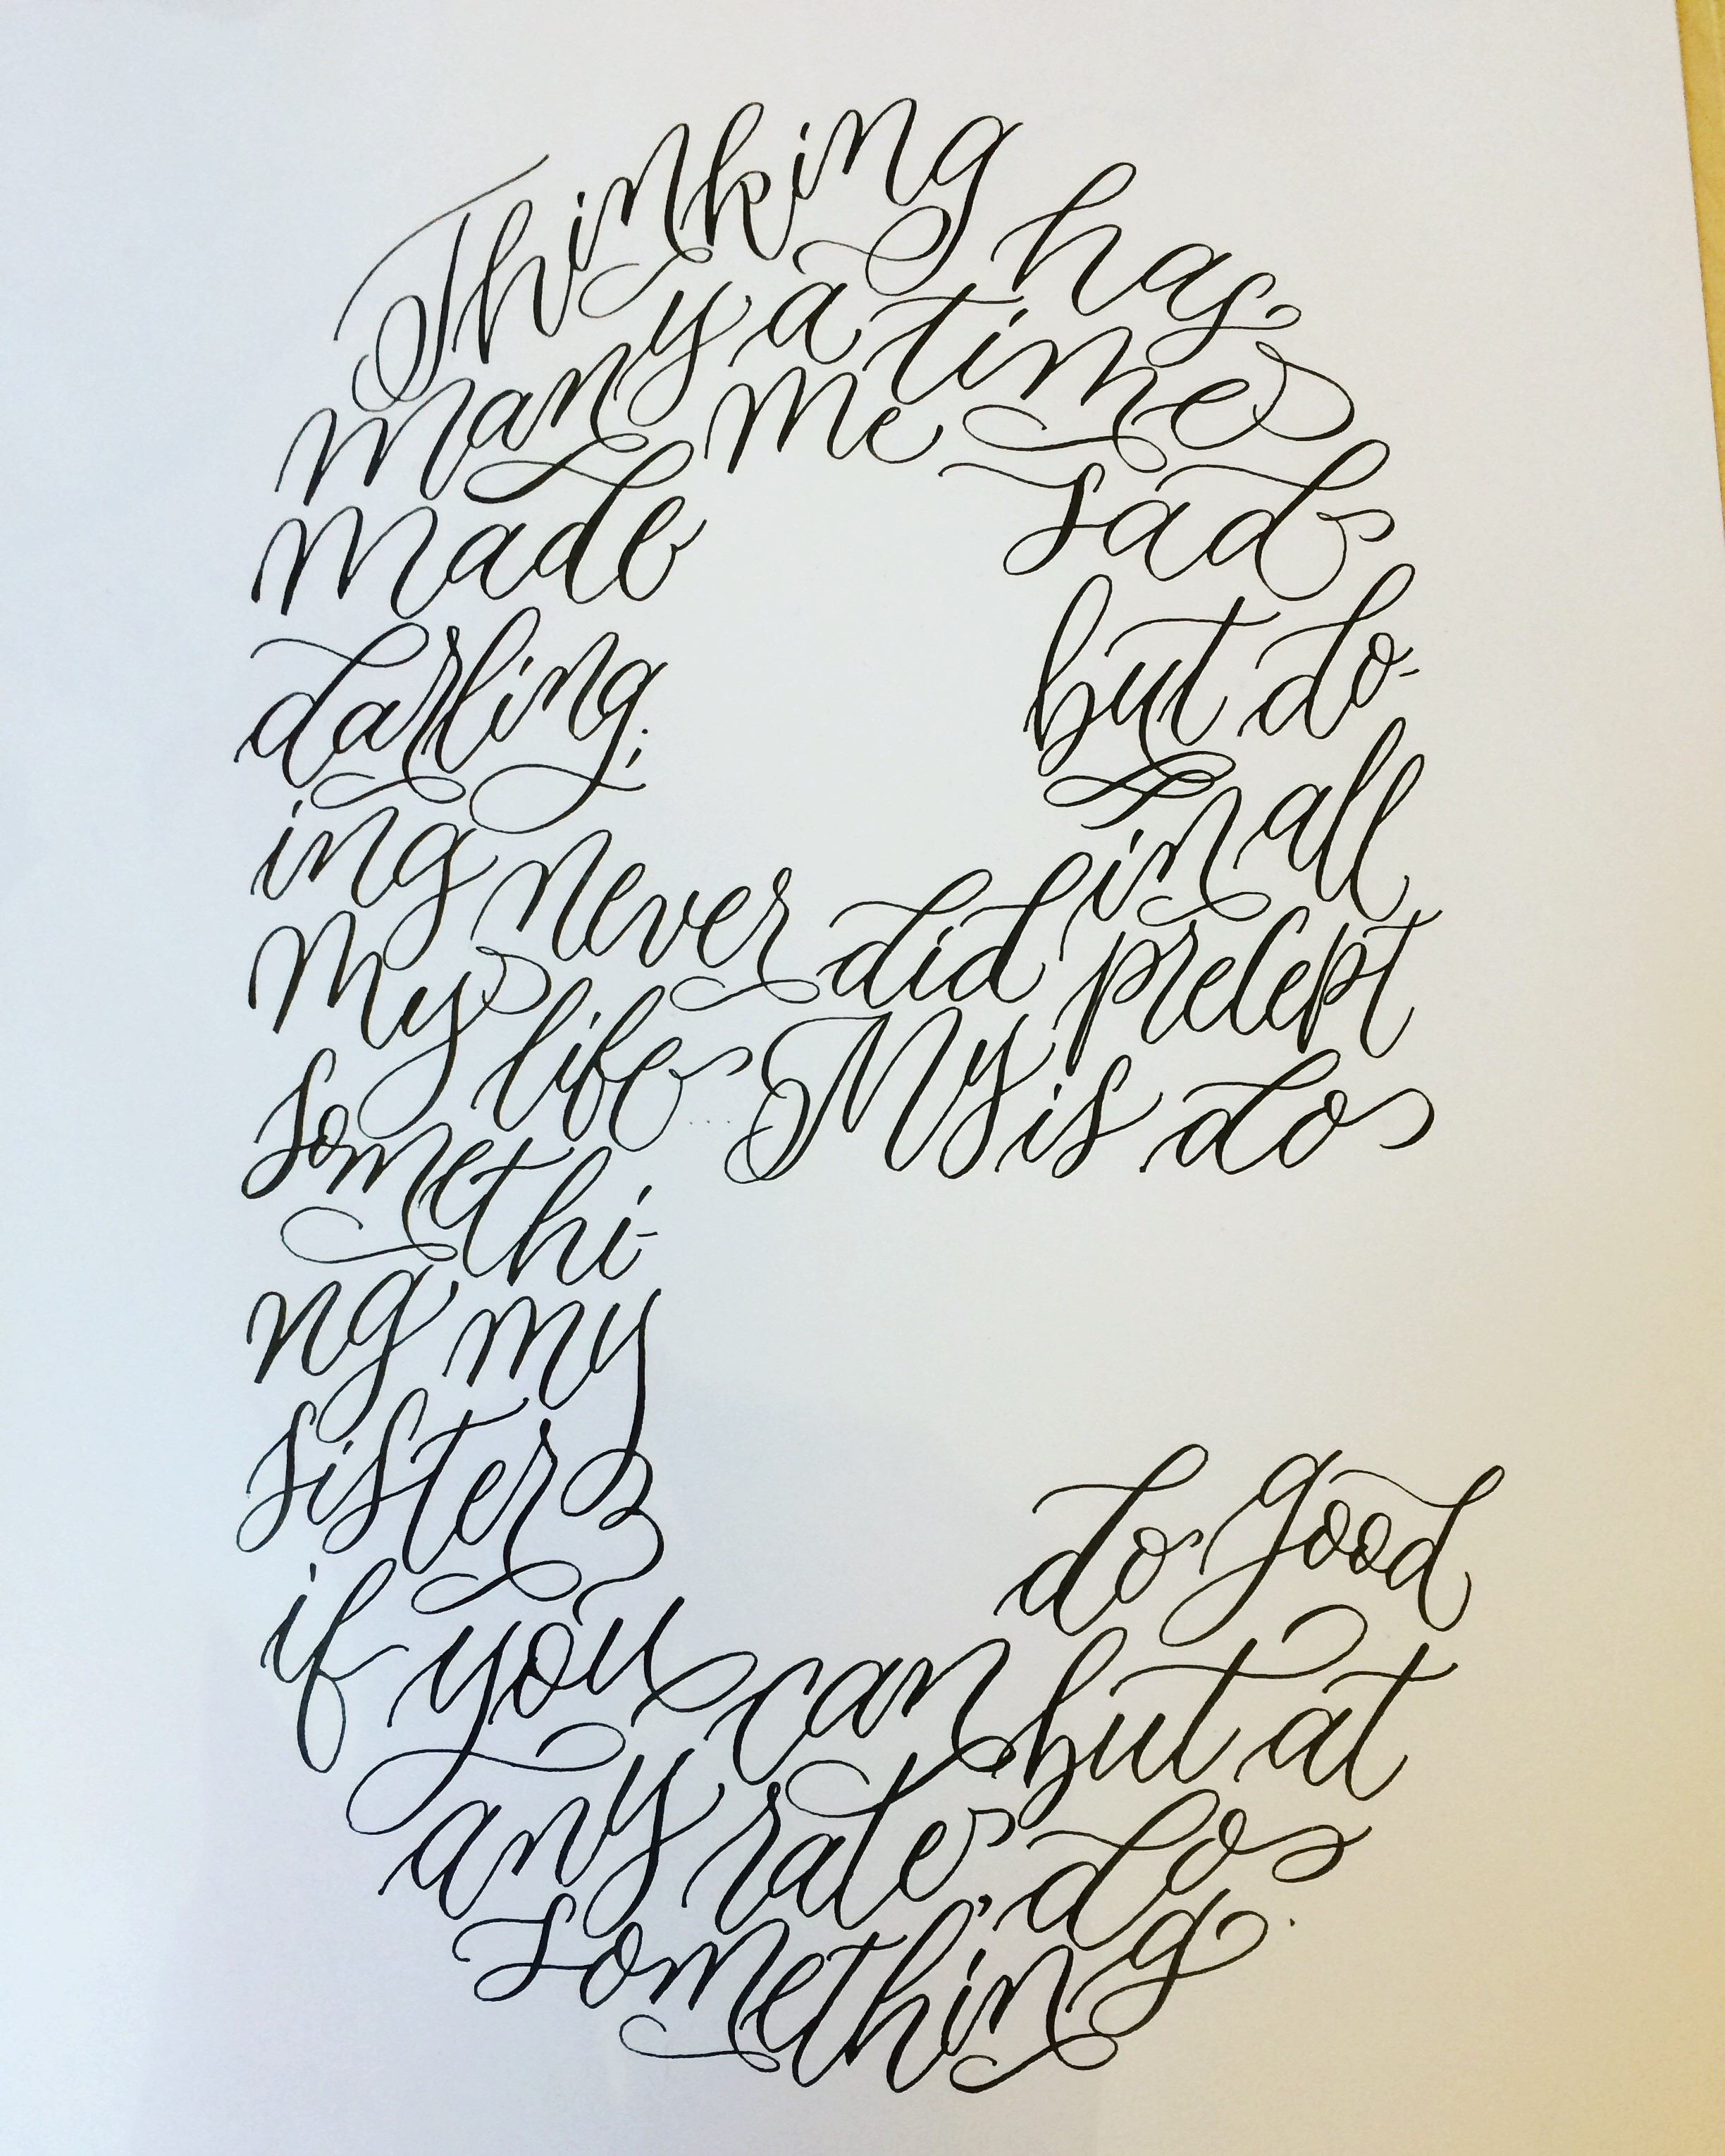 Thinking has
many a time
made me sad
darling; but do-
ing never did in all
my life.... My precept is do
somethi-
ng my
sister
do good
if you can but at
any rate, do
something.